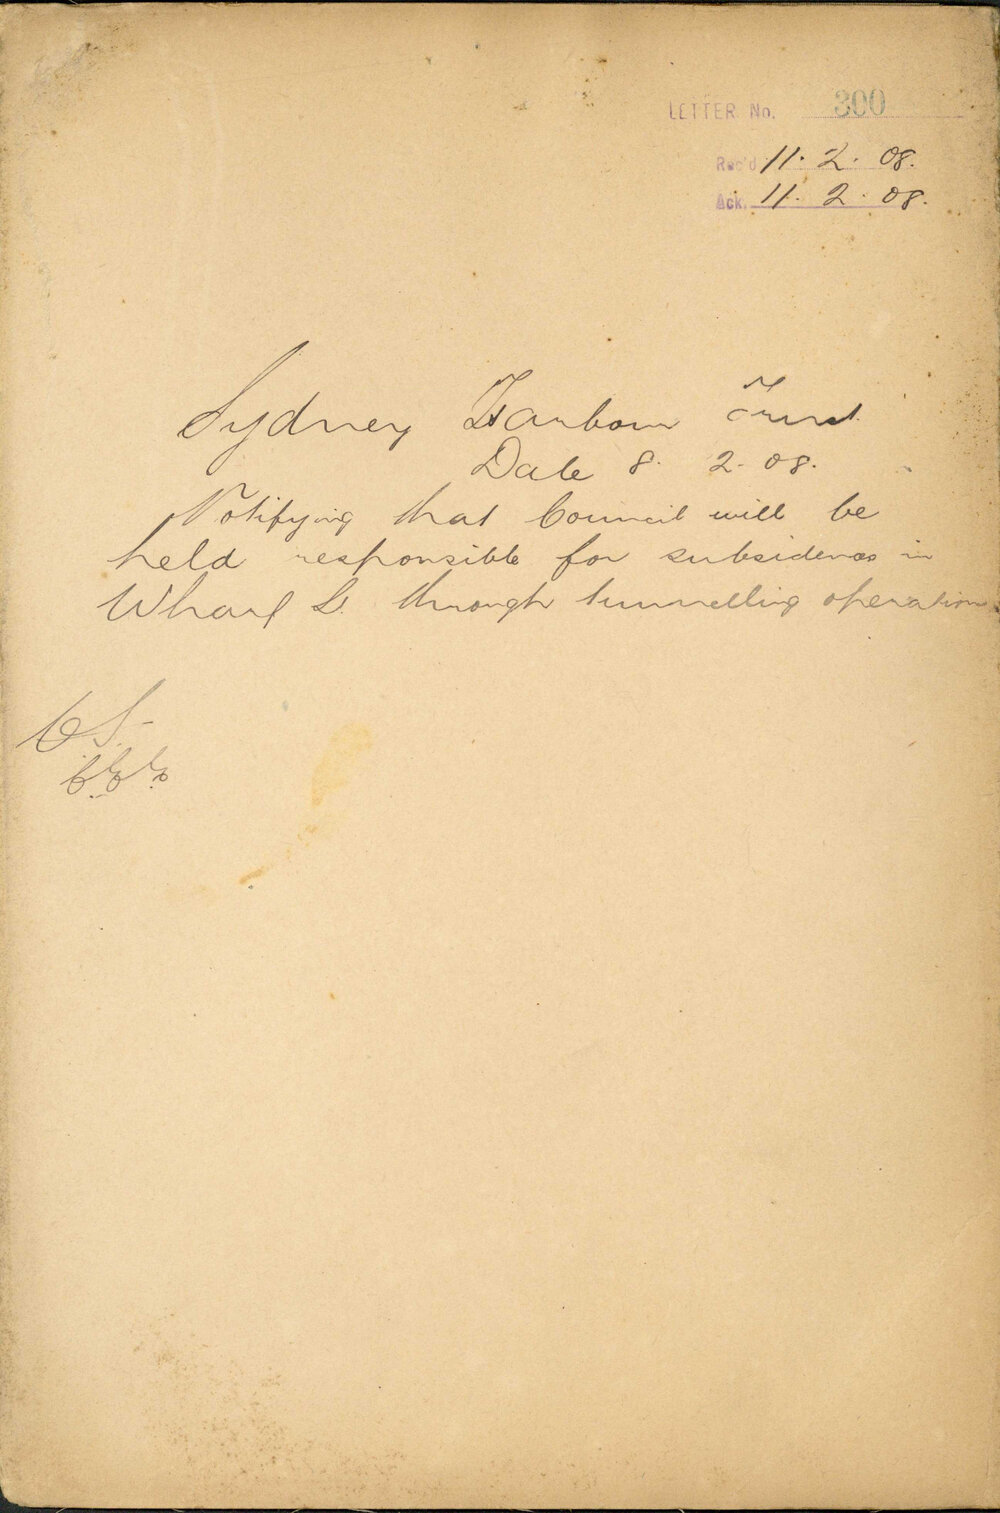 LETTER No. 300
Rec'd 11. 2. 08.
Ack. 11. 2. 08.
Sydney Harbour Trust
Date 8. 2. 08.
Notifying that Council will be
held responsible for subsidences in
Wharf St. through tunnelling operations